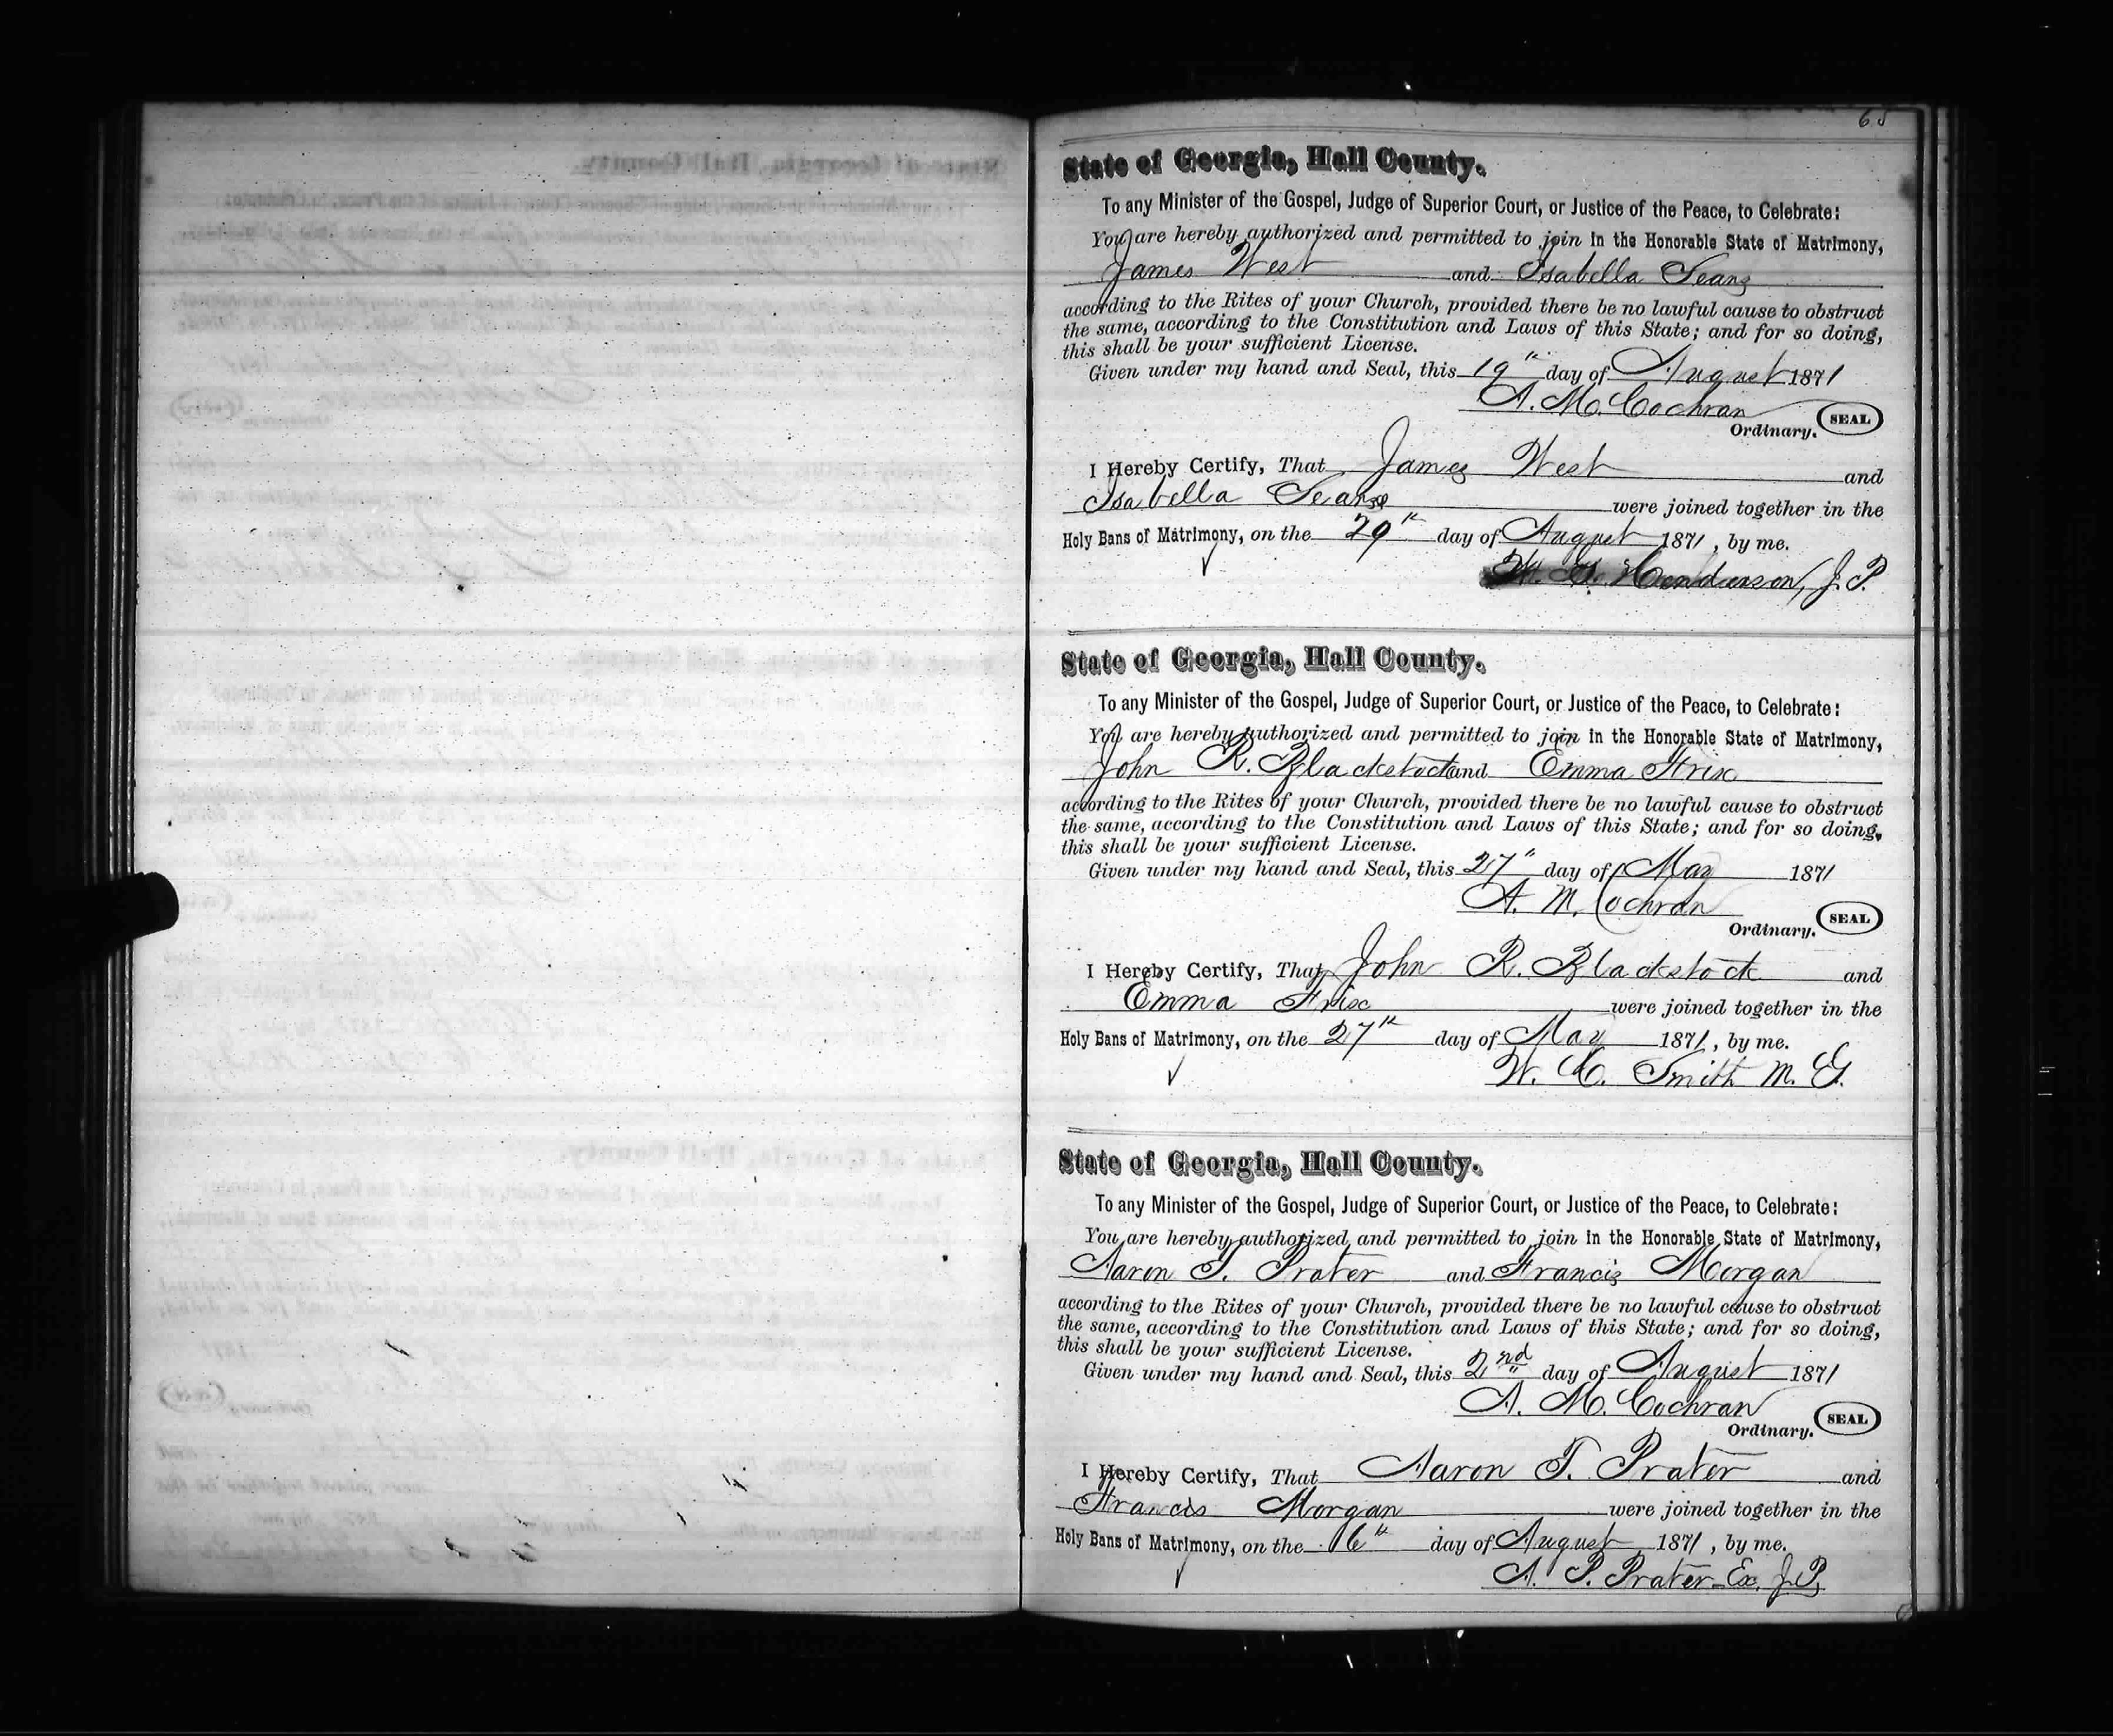 65
State of Georgia, Hall County.
To any Minister of the Gospel, Judge of Superior Court, or Justice of the Peace, to Celebrate:
You are hereby authorized and permitted to join in the Honorable State of Matrimony,
James West and Isabella Seans
according to the Rites of your Church, provided there be no lawful cause to obstruct
the same, according to the Constitution and Laws of this State; and for so doing,
this shall be your sufficient License.
Given under my hand and Seal, this 19" day of August 1871
A. M. Cochran
Ordinary. SEAL
I Hereby Certify, That James West and
Isabella were joined together in the
Holy Bans of Matrimony, on the 29th day of August 1871, by me.
Henderson, J. P.
State of Georgia, Hall County.
To any Minister of the Gospel, Judge of Superior Court, or Justice of the Peace, to Celebrate:
You are hereby authorized and permitted to join in the Honorable State of Matrimony,
John R. Blackstock and Emma Frix
according to the Rites of your Church, provided there be no lawful cause to obstruct
the same, according to the Constitution and Laws of this State; and for so doing,
this shall be your sufficient License.
Given under my hand and Seal, this 27" day of May 1871
A. M. Cochran
Ordinary. SEAL
I Hereby Certify, That John R. Blackstock and
Emma Frix were joined together in the
Holy Bans of Matrimony, on the 27th day of May 1871, by me.
W. C. Smith M. G.
State of Georgia, Hall County.
To any Minister of the Gospel, Judge of Superior Court, or Justice of the Peace, to Celebrate:
You are hereby authorized and permitted to join in the Honorable State of Matrimony,
Aaron T. Prater and Francis Morgan
according to the Rites of your Church, provided there be no lawful cause to obstruct
the same, according to the Constitution and Laws of this State; and for so doing,
this shall be your sufficient License.
Given under my hand and Seal, this 2nd day of August 1871
A. M. Cochran
Ordinary. SEAL
I Hereby Certify, That Aaron T. Prater and
Francis Morgan were joined together in the
Holy Bans of Matrimony, on the 6th day of August 1871, by me.
A. P. Prater Ex. J. P.